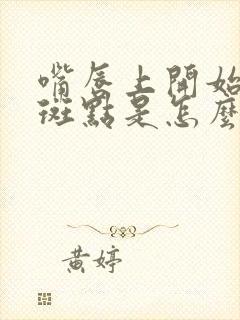 嘴唇上開始
斑點是怎麼
黃婷